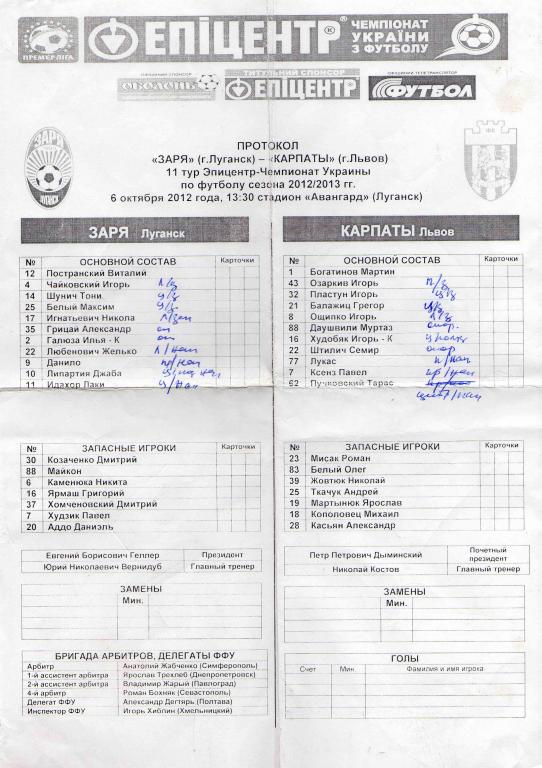 ПРЕМ'ЄР-ЛІГА
ЕПІЦЕНТР®
ЧЕМПІОНАТ
УКРАЇНИ
З ФУТБОЛУ
ОФІЦІЙНИЙ СПОНСОР
ОБОЛОНЬ
ТИТУЛЬНИЙ СПОНСОР
ЕПІЦЕНТР
ОФІЦІЙНИЙ ТЕЛЕТРАНСЛЯТОР
ФУТБОЛ
ЗАРЯ
ЛУГАНСК
ПРОТОКОЛ
«ЗАРЯ» (г.Луганск) – «КАРПАТЫ» (г.Львов)
11 тур Эпицентр-Чемпионат Украины
по футболу сезона 2012/2013 гг.
6 октября 2012 года, 13:30 стадион «Авангард» (Луганск)
ЗАРЯ Луганск
№ ОСНОВНОЙ СОСТАВ Карточки
12 Постранский Виталий
4 Чайковский Игорь л/з
14 Шунич Тони ц/з
25 Белый Максим ц/з
17 Игнатьевич Никола
35 Грицай Александр оп
2 Галюза Илья - К оп
22 Любенович Желько
9 Данило
10 Липартия Джаба
11 Идахор Лаки
№ ЗАПАСНЫЕ ИГРОКИ Карточки
30 Козаченко Дмитрий
88 Майкон
6 Каменюка Никита
16 Ярмаш Григорий
37 Хомченовский Дмитрий
7 Худзик Павел
20 Аддо Даниэль
Евгений Борисович Геллер Президент
Юрий Николаевич Вернидуб Главный тренер
ЗАМЕНЫ
Мин.
БРИГАДА АРБИТРОВ, ДЕЛЕГАТЫ ФФУ
Арбитр Анатолий Жабченко (Симферополь)
1-й ассистент арбитра Ярослав Трехлеб (Днепропетровск)
2-й ассистент арбитра Владимир Жарый (Павлоград)
4-й арбитр Роман Бохняк (Севастополь)
Делегат ФФУ Александр Дегтярь (Полтава)
Инспектор ФФУ Игорь Хиблин (Хмельницкий)
КАРПАТЫ Львов
№ ОСНОВНОЙ СОСТАВ Карточки
1 Богатинов Мартин
43 Озаркив Игорь п/з
32 Пластун Игорь ц/з
21 Балажиц Грегор ц/з
8 Ощипко Игорь л/з
88 Даушвили Муртаз опор.
16 Худобяк Игорь - К
22 Штилич Семир опор
77 Лукас
7 Ксенз Павел
62 Пучковский Тарас
№ ЗАПАСНЫЕ ИГРОКИ Карточки
23 Мисак Роман
83 Белый Олег
39 Жовтюк Николай
25 Ткачук Андрей
19 Мартынюк Ярослав
18 Кополовец Михаил
28 Касьян Александр
Петр Петрович Дыминский Почетный президент
Николай Костов Главный тренер
ЗАМЕНЫ
Мин.
ГОЛЫ
Счет Мин. Фамилия и имя игрока